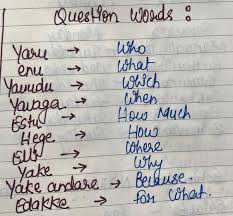 Question Words :
Yaru → Who
enu → What
Yavudu → Which
Yavaga → When
Estu → How Much
Hege → How
Elli → Where
Yake → Why
Yake andare → Because.
Edakke → for what.